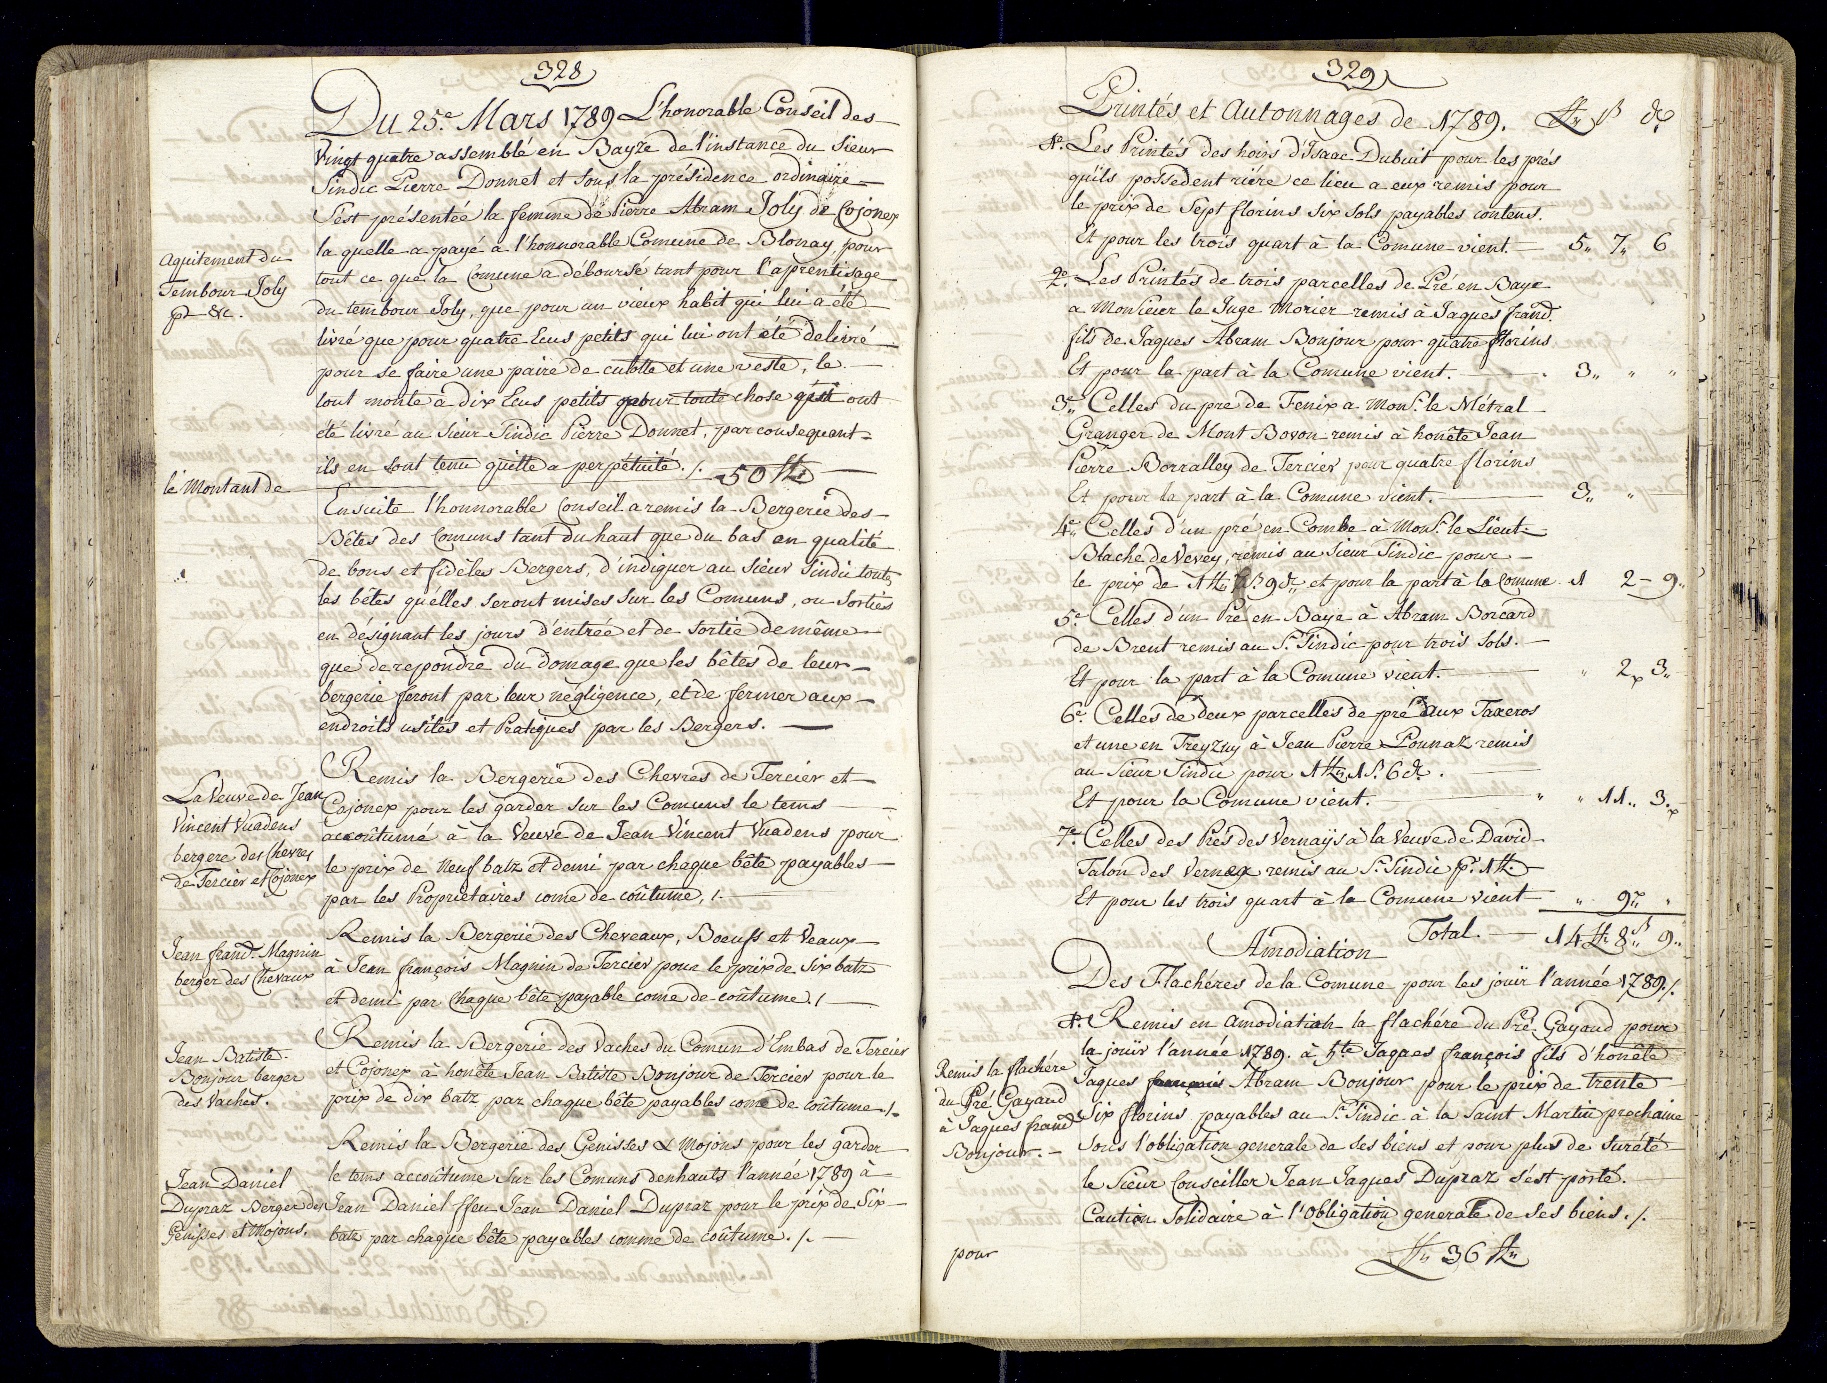 328
Du 25.e Mars 1789 L'honorable Conseil des
Vingt quatre assemblé en Bayze de l'instance du Sieur
Sindic Pierre Donnet et sous la présidence ordinaire
S'est présentée la femme de Pierre Abram Joly de Cojonex
la quelle a payé a l'honnorable Comune de Blonay pour
tout ce que la Comune a déboursé tant pour l'aprentisage
du tembour Joly, que pour un vieux habit qui lui a été
livré que pour quatre Ecus petits qui lui ont été delivré
pour se faire une paire de culotte et une veste, le
tout monte à dix Ecus petits pour toute chose qui ont
été livré au Sieur Sindic Pierre Donnet, par consequant
ils en sont tenu quitte a perpétuité ./. 50 ff
Aquitement du
Tembour Joly
pr &c.
le Montant de
Ensuite l'honnorable Conseil a remis la Bergerie des
Bêtes des Comuns tant du haut que du bas en qualité
de bons et fidèles Bergers, d'indiquer au Sieur Sindic toutes
les bêtes quelles seront mises sur les Comuns, ou sorties
en désignant les jours d'entrée et de sortie de même
que de repondre du domage que les bêtes de leur
bergerie feront par leur négligence, et de fermer aux
endroits usités et Pratiqués par les Bergers.
Remis la Bergerie des Chevres de Tercier et
Cojonex pour les garder sur les Comuns le tems
accoûtumé à la Veuve de Jean Vincent Vuadens pour
le prix de neuf batz et demi par chaque bête payables
par les Propriétaires come de coûtume, /.
La Veuve de Jean
Vincent Vuadens
bergere des Chevres
de Tercier et Cojonex
Remis la Bergerie des Cheveaux, Boeufs et Veaux
à Jean françois Magnin de Tercier pour le prix de Six batz
et demi par chaque bête payable come de coûtume. /.
Jean frand. Magnin
berger des Chevaux
Remis la Bergerie des Vaches du Comun d'Embas de Tercier
et Cojonex à honête Jean Batiste Bonjour de Tercier pour le
prix de dix batz par chaque bête payables come de coûtume ./.
Jean Batiste
Bonjour berger
des Vaches.
Remis la Bergerie des Genisses & Mojons pour les garder
le tems accoûtume sur les Comuns denhauts l'année 1789 à
Jean Daniel ffeu Jean Daniel Dupraz pour le prix de Six
batz par chaque bête payables comme de coûtume ./.
Jean Daniel
Dupraz Berger des
Genisses et Mojons.
329
Printés et Autonnages de 1789. ff ß d
1.o Les Printés des hoirs d'Isaac Dubuit pour les prés
qu'ils possedent riére ce lieu a eux remis pour
le prix de Sept florins six sols payables contens.
Et pour les trois quart à la Comune vient 5,, 7,, 6
2.e Les Printés de trois parcelles de Pré en Baye
a Monsieur le Juge Morier remis à Jaques frand.
fils de Jaques Abram Bonjour pour quatre florins
Et pour la part à la Comune vient. 3,, ,, ,,
3.e Celles du pre de Fenix a Mons.r le Métral
Granger de Mont Bovon remis à honête Jean
Pierre Borralley de Tercier pour quatre florins
Et pour la part à la Comune vient. 3,, ,,
4.e Celles d'un pré en Combe à Mons.r le Lieut.
Blache de Vevey, remis au Sieur Sindic pour
le prix de 1 ff ß. 9 d. et pour la part à la Comune 1 2 - 9,,
5.e Celles d'un Pré en Baye à Abram Borcard
de Brent remis au S.r Sindic pour trois sols.
Et pour la part à la Comune vient. ,, 2 3,,
6.e Celles de deux parcelles de pré aux Taxeros
et une en Treyzuy à Jean Pierre Pounaz remis
au Sieur Sindic pour 1 ff,, 1 ß. 6 d.
Et pour la Comune vient. ,, ,, 11,, 3.
7.e Celles des Prés des Vernays à la Veuve de David
Talon des Vernex remis au S.r Sindic p.r 1 ff
Et pour les trois quart à la Comune vient ,, 9,, ,,
Total. 14 ff 8 ß 9,,
Amodiation
Des Flachéres de la Comune pour les jouir l'année 1789 ./.
1.o Remis en Amodiation la flachére du Pré Gayaud pour
la jouir l'année 1789. à hte Jaques françois fils d'honête
Jaques françois Abram Bonjour pour le prix de trente
Six florins payables au S.r Sindic à la Saint Martin prochaine
sous l'obligation generale de ses biens et pour plus de sureté
le Sieur Conseiller Jean Jaques Dupraz s'est porté
Caution Solidaire à l'Obligation generale de ses biens ./.
ff,, 36 ff,,
Remis la flachére
du Pré Gayaud
à Jaques frand
Bonjour.
pour